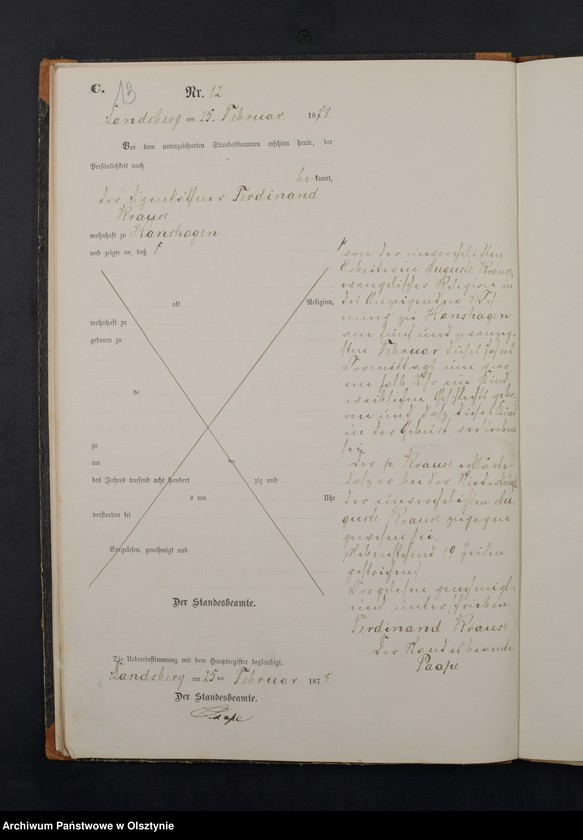 C. 13 Nr. 12
Landsberg am 25. Februar 1878.
Vor dem unterzeichneten Standesbeamten erschien heute, der
Persönlichkeit nach
bekannt,
der Eigenkäthner Ferdinand
Krause
wohnhaft zu Hanshagen
und zeigte an, daß
alt Religion,
wohnhaft zu
geboren zu
de
zu
am ten
des Jahres tausend acht hundert zig und
s um Uhr
verstorben sei
Vorgelesen, genehmigt und
Der Standesbeamte.
Die Uebereinstimmung mit dem Hauptregister beglaubigt.
Landsberg am 25 ten Februar 1878
Der Standesbeamte.
Paape
von der unverehelichten
Arbeiterin Auguste Krause,
evangelischer Religion in
des Anzeigenden Woh-
nung zu Hanshagen
am fünf und zwanzig-
sten Februar dieses Jahres
Vormittags um vier
ein halb Uhr ein Kind
weiblichen Geschlechts gebo-
ren und daß dieses Kind
in der Geburt verstorben
sei.
Der p. Krause erklärte
daß er bei der Niederkunft
der unverehelichten Au-
guste Krause zugegen
gewesen sei.
Nebenstehend 10 Zeilen
gestrichen
Vorgelesen genehmigt
und unterschrieben
Ferdinand Krause
Der Standesbeamte
Paape
Archiwum Państwowe w Olsztynie